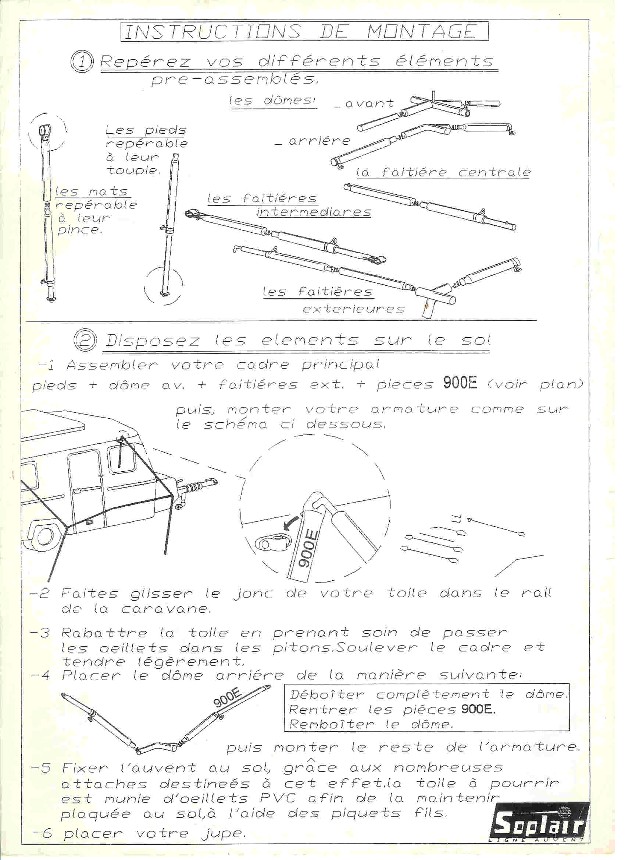 INSTRUCTIONS DE MONTAGE
1 Repérez vos différents éléments
pre-assemblés.
les dômes: _ avant
_ arriére
Les pieds
repérable
à leur
toupie.
les mats
repérable
à leur
pince.
la faîtiére centrale
les faitiéres
intermediares
les faîtiéres
exterieures
2 Disposez les elements sur le sol
-1 Assembler votre cadre principal
pieds + dôme av. + faitiéres ext. + pieces 900E (voir plan)
puis, monter votre armature comme sur
le schéma ci dessous.
900E
-2 Faites glisser le jonc de votre toile dans le rail
de la caravane.
-3 Rabattre la toile en prenant soin de passer
les oeillets dans les pitons.Soulever le cadre et
tendre légèrement.
-4 Placer le dôme arriére de la manière suivante:
900E
Déboîter complètement le dôme.
Rentrer les piéces 900E.
Remboîter le dôme.
puis monter le reste de l'armature.
-5 Fixer l'auvent au sol, grâce aux nombreuses
attaches destineés à cet effet.la toile à pourrir
est munie d'oeillets PVC afin de la maintenir
plaquée au sol,à l'aide des piquets fils.
-6 placer votre jupe.
Soplair
LIGNE AUVENT